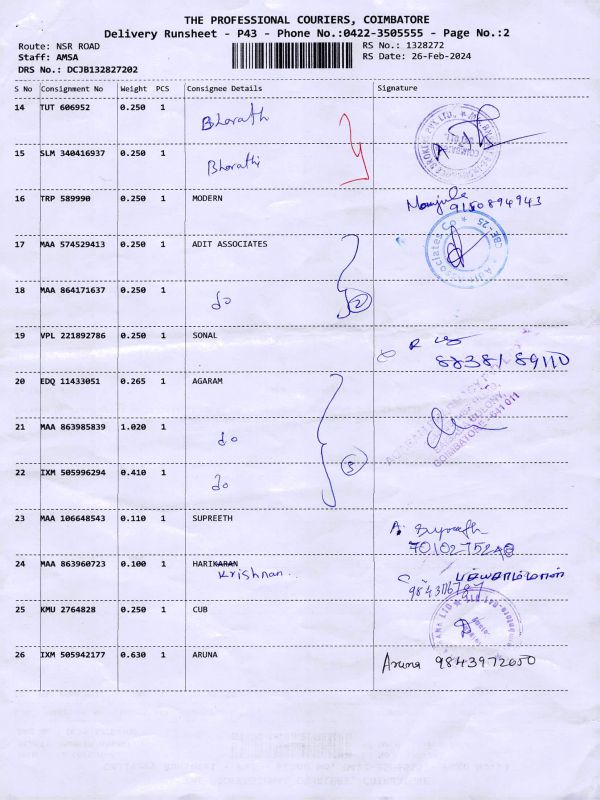 THE PROFESSIONAL COURIERS, COIMBATORE
Delivery Runsheet - P43 - Phone No.:0422-3505555 - Page No.:2
Route: NSR ROAD
RS No.: 1328272
Staff: AMSA
RS Date: 26-Feb-2024
DRS No.: DCJB132827202
S No Consignment No Weight PCS Consignee Details Signature
14 TUT 606952 0.250 1 Bharath
15 SLM 340416937 0.250 1 Bharathi
16 TRP 589990 0.250 1 MODERN Manjula
9150894943
17 MAA 574529413 0.250 1 ADIT ASSOCIATES
18 MAA 864171637 0.250 1 do 2
19 VPL 221892786 0.250 1 SONAL
88381 89110
20 EDQ 11433051 0.265 1 AGARAM
21 MAA 863985839 1.020 1 do
COIMBATORE - 641 011
22 IXM 505996294 0.410 1 do 3
23 MAA 106648543 0.110 1 SUPREETH A. Supreeth
24 MAA 863960723 0.100 1 HARIKARAN
Krishnan..
25 KMU 2764828 0.250 1 CUB
26 IXM 505942177 0.630 1 ARUNA Aruna 9843972650